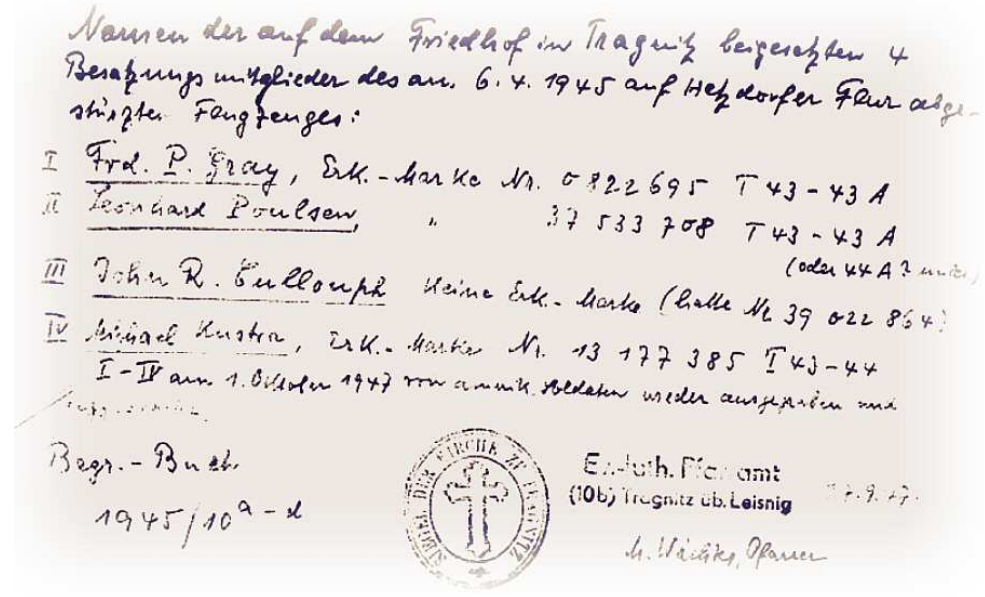 Namen der auf dem Friedhof in Tragnitz beigesetzten 4
Besatzungsmitglieder des am 6.4.1945 auf Hetzdorfer Flur abge-
stürzten Flugzeuges:
I Frd. P. Gray, Erk.-Marke Nr. 0822695 T 43-43 A
II Leonhard Poulsen, " 37 533 708 T 43-43 A
(oder 44 A?
III John R. Cullouph Keine Erk.-Marke (hatte Nr 39 022 864?
IV Michael Kustra, Erk.-Marke Nr. 13 177 385 T 43-44
I-IV am 1. Oktober 1947 von amerik. Soldaten wieder ausgegraben und
Begr.-Buch
1945/10a-d
SIEGEL DER KIRCHE ZU TRAGNITZ
Ev.-luth. Pfarramt
(10b) Tragnitz üb. Leisnig
27.9.47.
Pfarrer